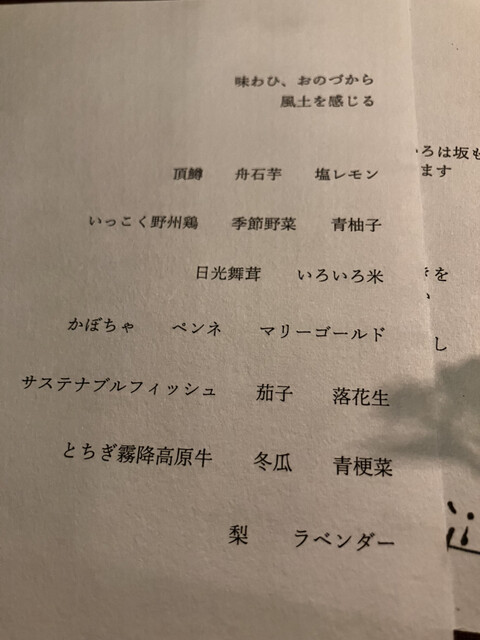 味わひ、おのづから
風土を感じる
頂鱒 舟石芋 塩レモン
いっこく野州鶏 季節野菜 青柚子
日光舞茸 いろいろ米
かぼちゃ ペンネ マリーゴールド
サステナブルフィッシュ 茄子 落花生
とちぎ霧降高原牛 冬瓜 青梗菜
梨 ラベンダー
ろは坂も
ます
を
し